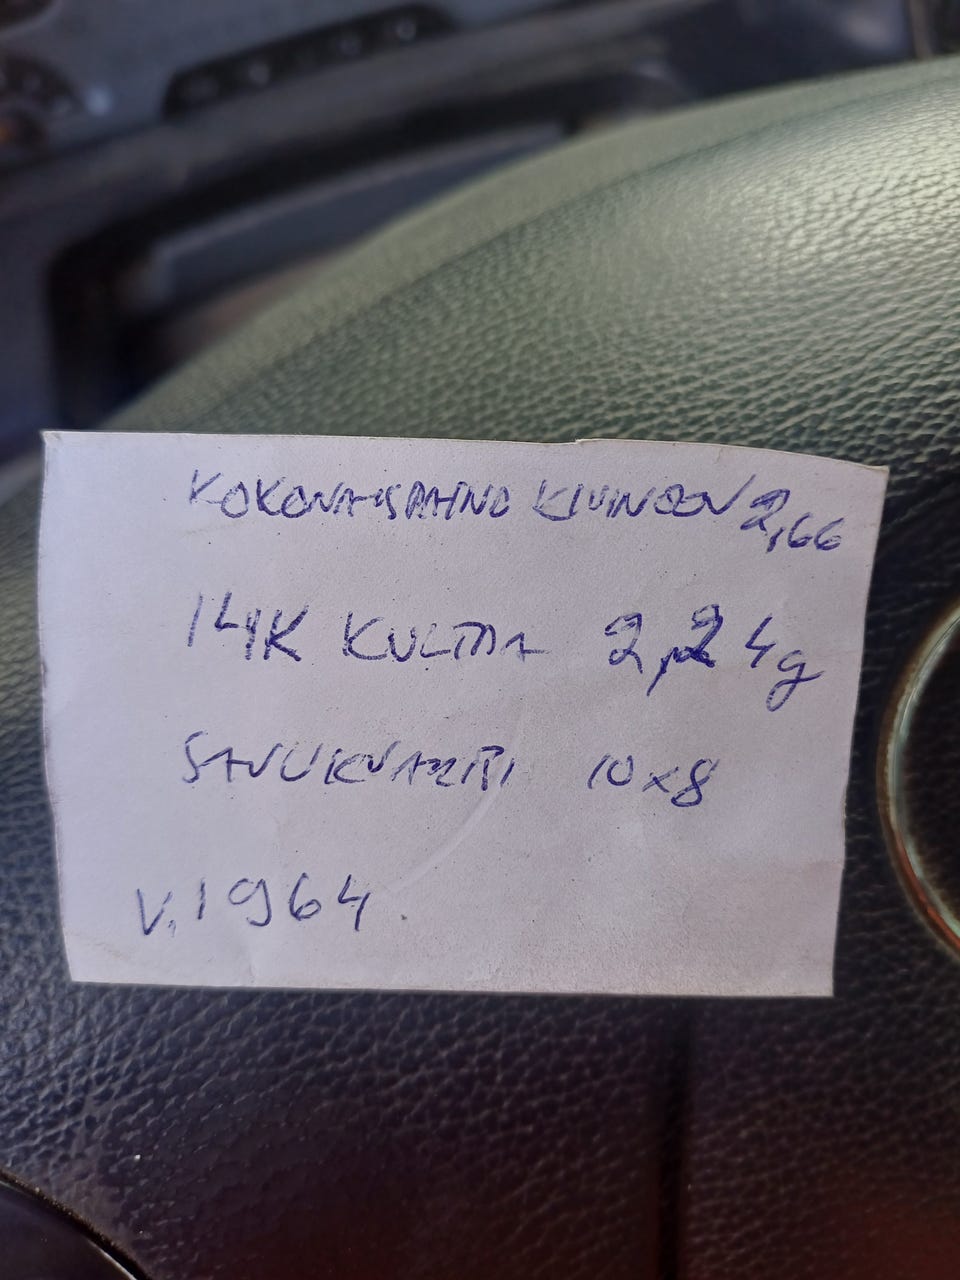 KOKONAISPAINO KIVINEEN 2,66
14K KULTAA 2,24g
SAVUKVARTSI 10x8
V.1964.